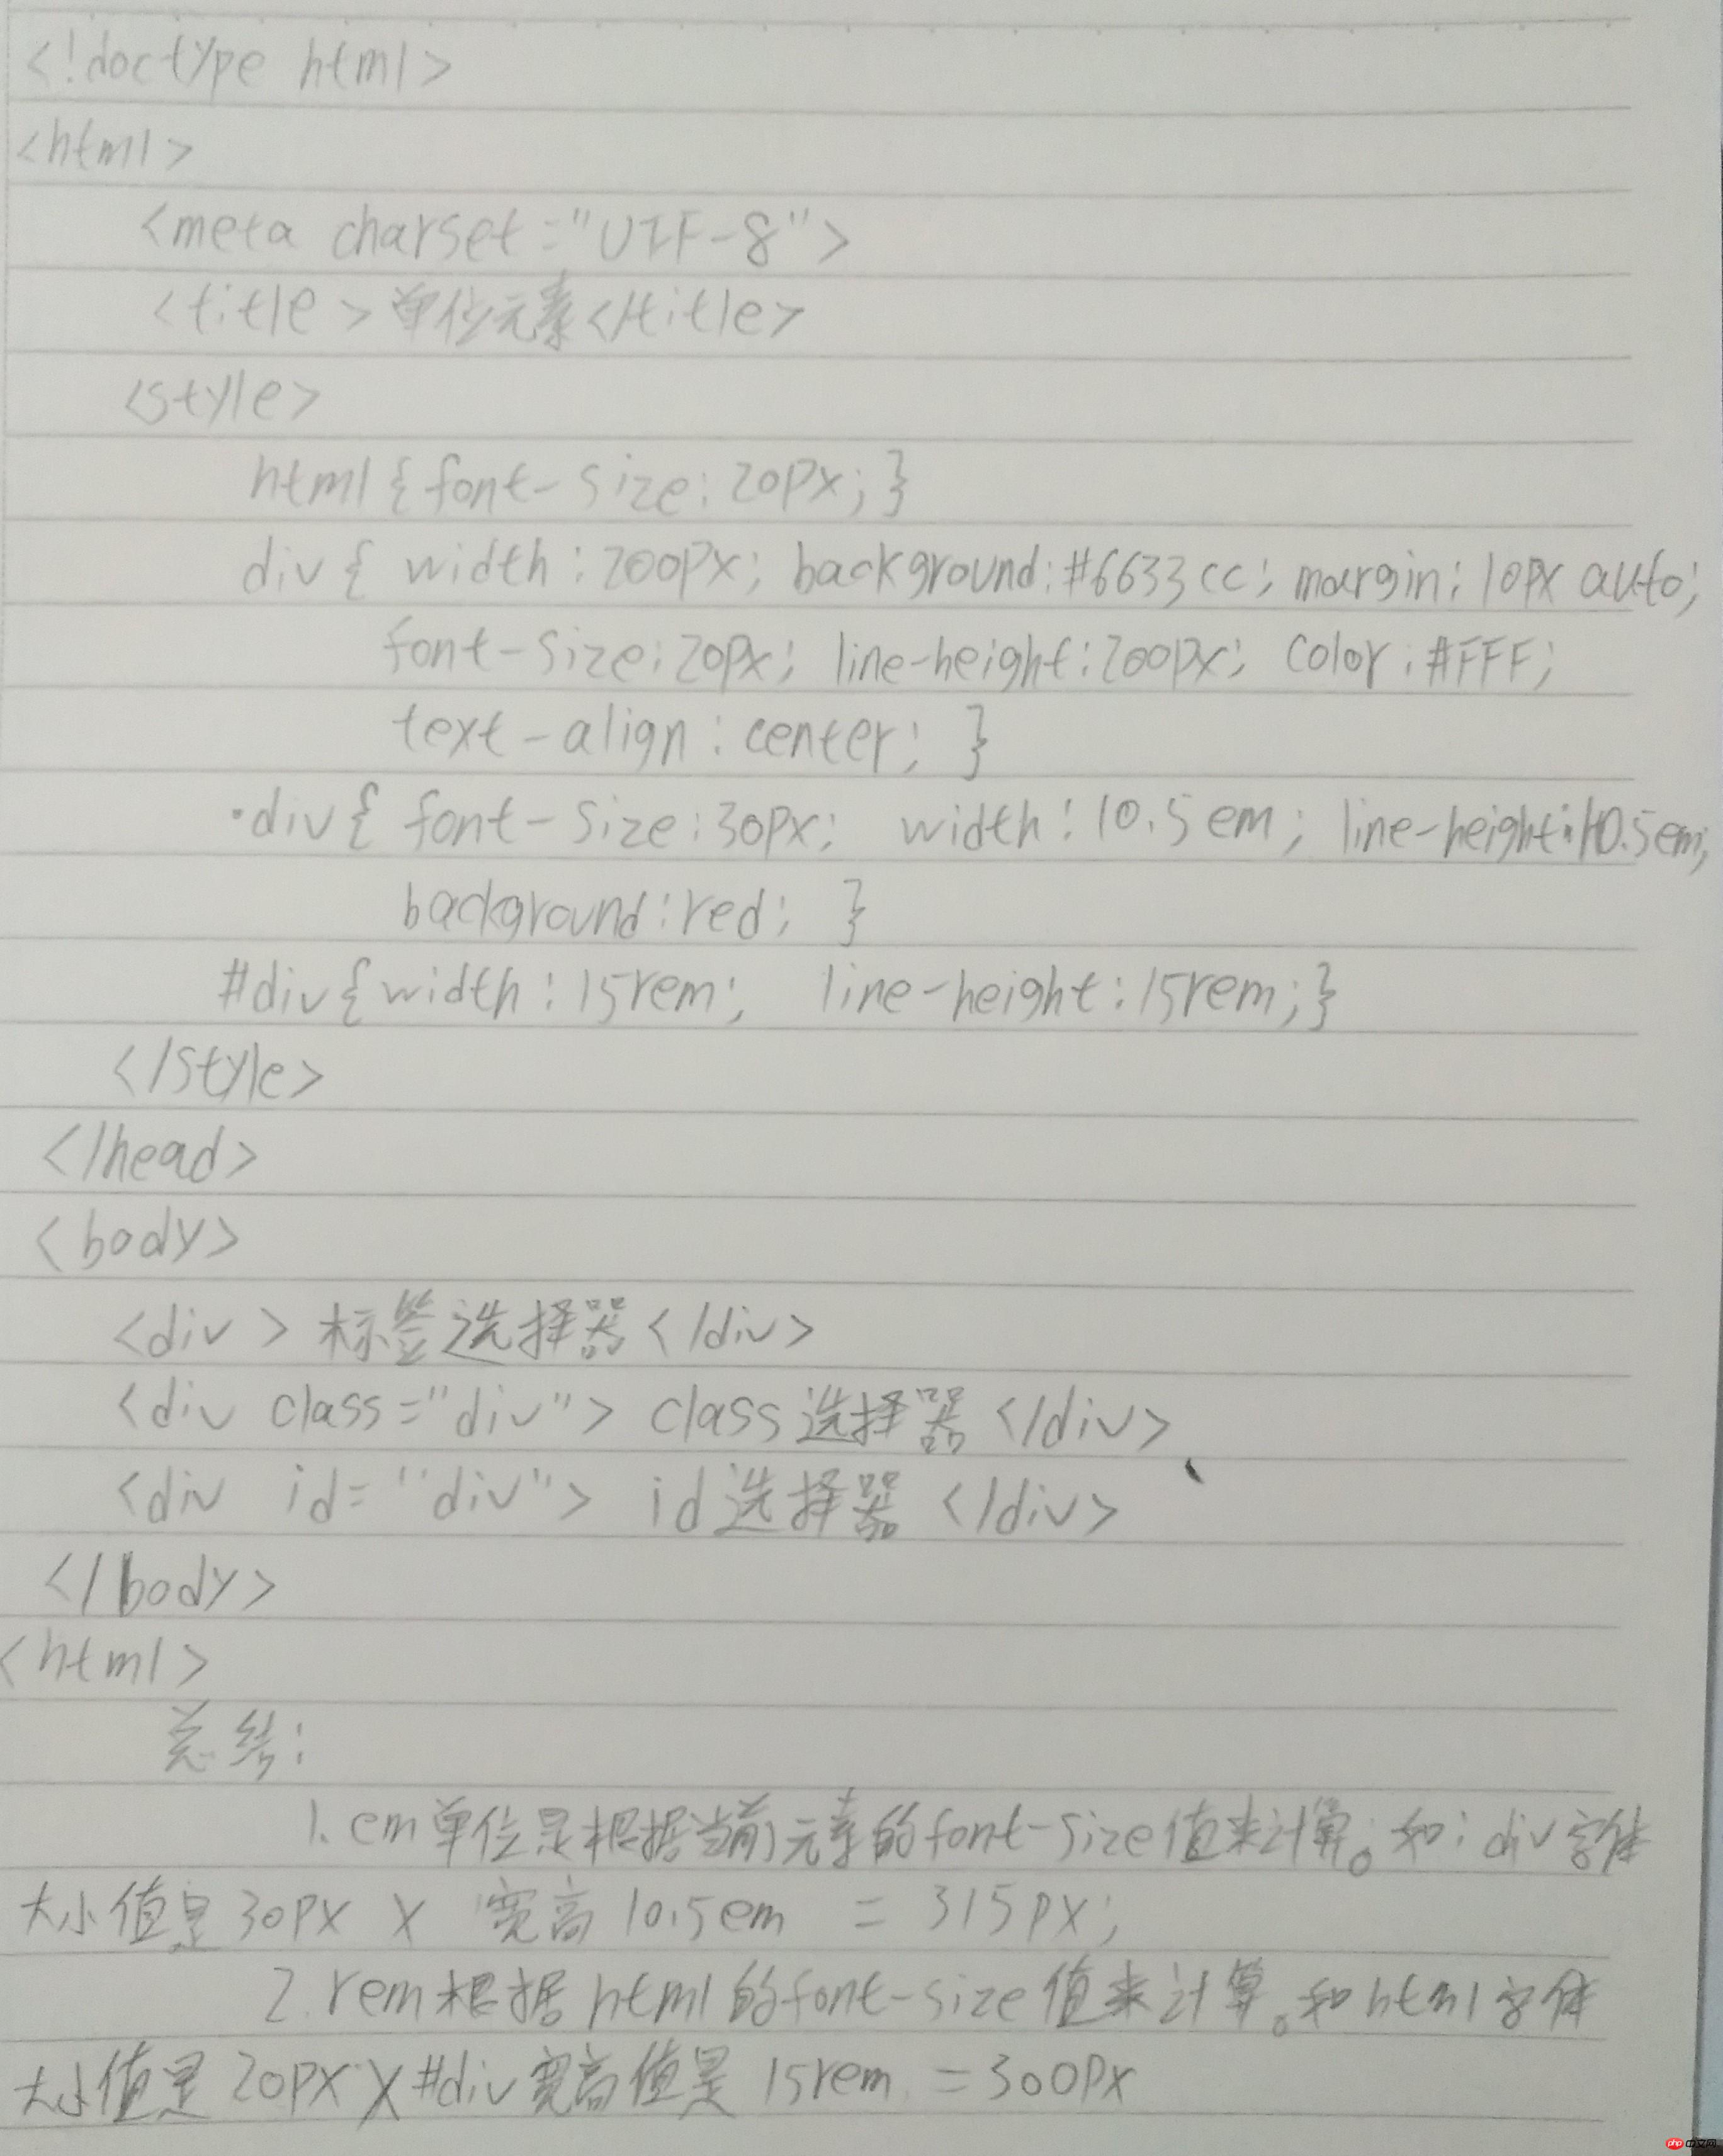 <!doctype html>
<html>
<meta charset="UTF-8">
<title>单位元素</title>
<style>
html{font-size:20px;}
div{ width:200px; background:#6633cc; margin:10px auto;
font-size:20px; line-height:200px; color:#FFF;
text-align:center; }
.div{ font-size:30px; width:10.5em; line-height:10.5em;
background:red; }
#div{width:15rem; line-height:15rem;}
</style>
</head>
<body>
<div>标签选择器</div>
<div class="div">class选择器</div>
<div id="div">id选择器</div>
</body>
<html>
总结:
1.em单位是根据当前元素的font-size值来计算。和:div字体
大小值是30px X 宽高10.5em = 315px;
2.rem根据html的font-size值来计算。和html字体
大小值是20px X #div宽高值是15rem = 300px
php 中文网